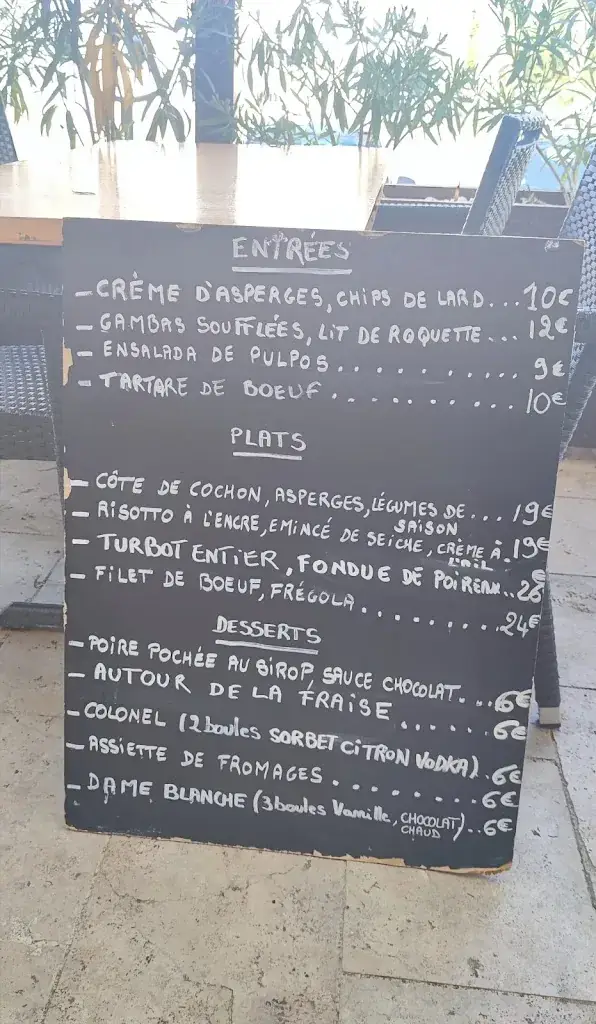 ENTRÉES
- CRÈME D'ASPERGES, CHIPS DE LARD...10€
- GAMBAS SOUFFLÉES, LIT DE ROQUETTE... 12€
- ENSALADA DE PULPOS........... 9€
- TARTARE DE BOEUF............ 10€
PLATS
- CÔTE DE COCHON, ASPERGES, LÉGUMES DE... 19€
SAISON
- RISOTTO À L'ENCRE, EMINCÉ DE SEICHE, CRÈME À. 19€
L'AIL
- TURBOT ENTIER, FONDUE DE POIREAU..26€
- FILET DE BOEUF, FRÉGOLA..........24€
DESSERTS
- POIRE POCHÉE AU SIROP, SAUCE CHOCOLAT...6€
- AUTOUR DE LA FRAISE......6€
- COLONEL (2 boules SORBET CITRON VODKA).6€
- ASSIETTE DE FROMAGES........6€
- DAME BLANCHE (3 boules Vanille, CHOCOLAT)..6€
CHAUD